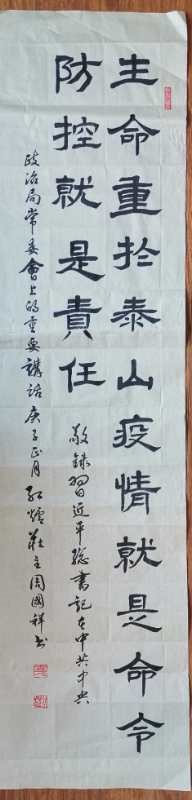 生命重於泰山疫情就是命令
防控就是責任
敬録習近平総書記在中共中央
政治局常委會上的重要講話庚子正月紅爐莊主周國祥书